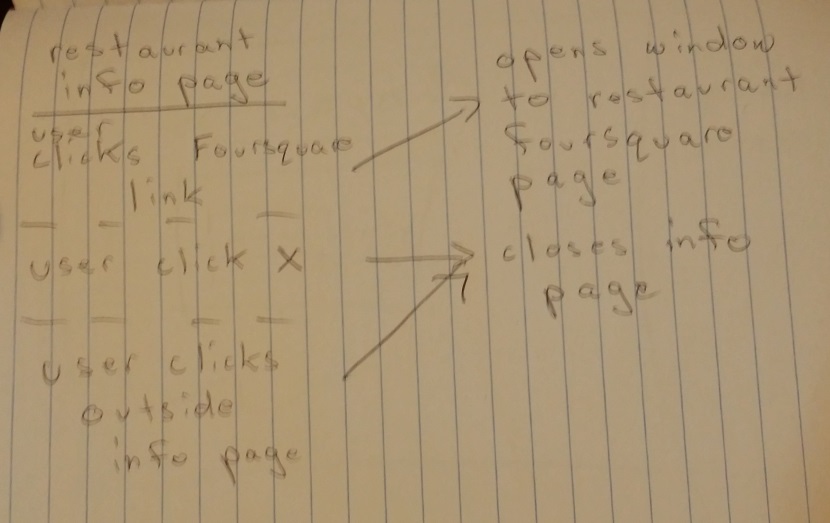 restaurant
info page
user
clicks Foursquare
link
user click X
user clicks
outside
info page
opens window
to restaurant
foursquare
page
closes info
page